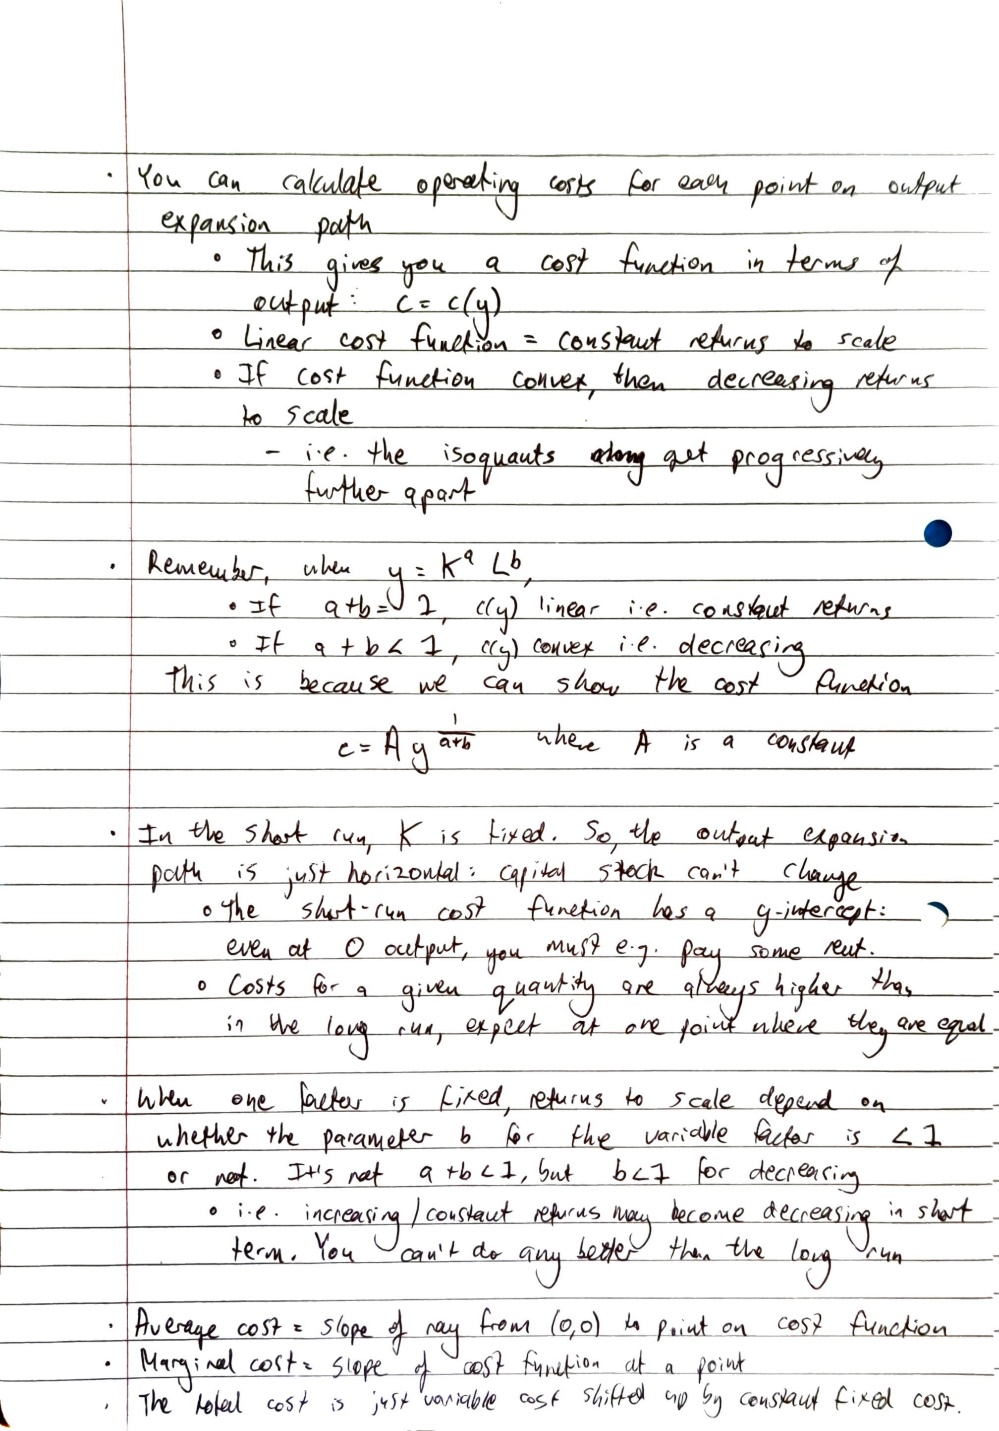 · You can calculate operating costs for each point on output
expansion path
• This gives you a cost function in terms of
output: c = c(y)
• Linear cost function = constant returns to scale
• If cost function convex, then decreasing returns
to scale
- i.e. the isoquants along get progressively
further apart
· Remember, when y = K^a L^b,
• If a+b = 1, c(y) linear i.e. constant returns
• If a + b < 1, c(y) convex i.e. decreasing
This is because we can show the cost function
c = A y^(1/(a+b)) where A is a constant
· In the short run, K is fixed. So, the output expansion
path is just horizontal: capital stock can't change
• The short-run cost function has a y-intercept:
even at 0 output, you must e.g. pay some rent.
• Costs for a given quantity are always higher than
in the long run, expect at one point where they are equal
· When one factor is fixed, returns to scale depend on
whether the parameter b for the variable factor is < 1
or not. It's not a + b < 1, but b < 1 for decreasing
• i.e. increasing / constant returns may become decreasing in short
term. You can't do any better than the long run
· Average cost = slope of ray from (0,0) to point on cost function
· Marginal cost = slope of cost function at a point
· The total cost is just variable cost shifted up by constant fixed cost.